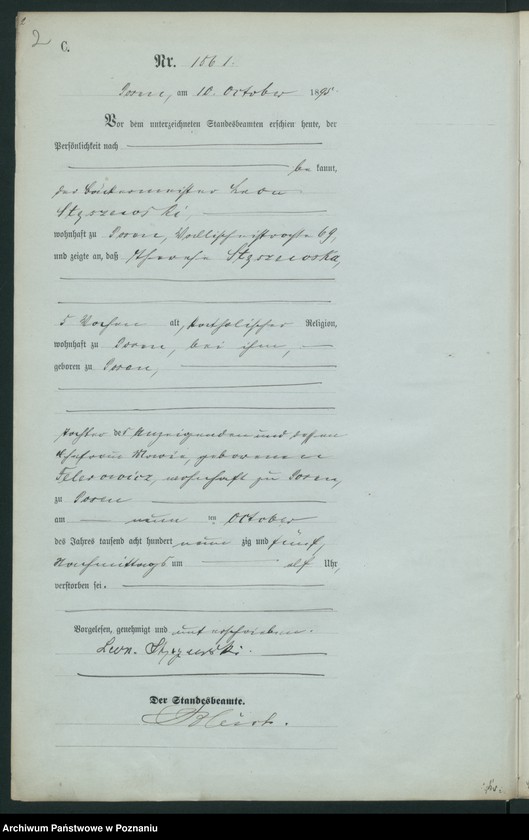 2
C.
Nr. 1561.
Posen, am 10. October 1895.
Vor dem unterzeichneten Standesbeamten erschien heute, der
Persönlichkeit nach
be kannt,
der Bäckermeister Leon
wohnhaft zu Posen, 69,
und zeigte an, daß Therese
5 Wochen alt, katholischer Religion,
wohnhaft zu Posen, bei ihm,
geboren zu Posen,
Tochter des Anzeigenden und dessen
Ehefrau Marie, geborenen
wohnhaft zu Posen,
zu Posen
am neun ten October
des Jahres tausend acht hundert neun zig und fünf,
Nachmittags um elf Uhr,
verstorben sei.
Vorgelesen, genehmigt und unterschrieben.
Leon
Der Standesbeamte.
Archiwum Państwowe w Poznaniu